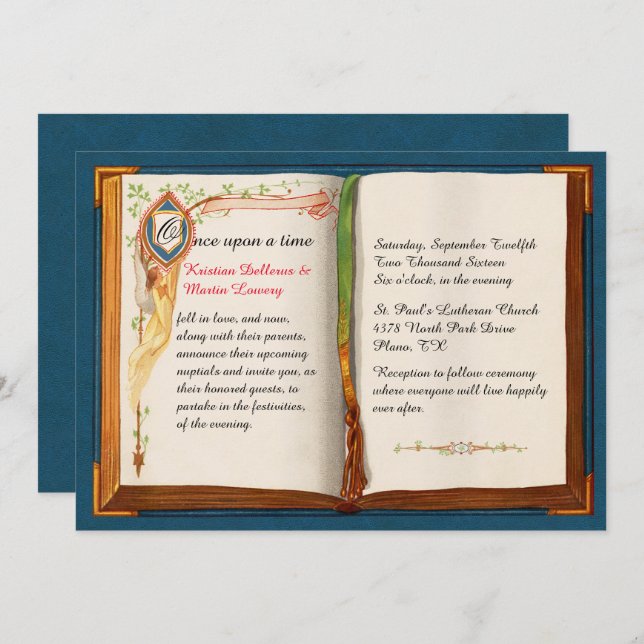 Once upon a time
Kristian Dellerus &
Martin Lowery
fell in love, and now,
along with their parents,
announce their upcoming
nuptials and invite you, as
their honored guests, to
partake in the festivities,
of the evening.
Saturday, September Twelfth
Two Thousand Sixteen
Six o'clock, in the evening
St. Paul's Lutheran Church
4378 North Park Drive
Plano, TX
Reception to follow ceremony
where everyone will live happily
ever after.